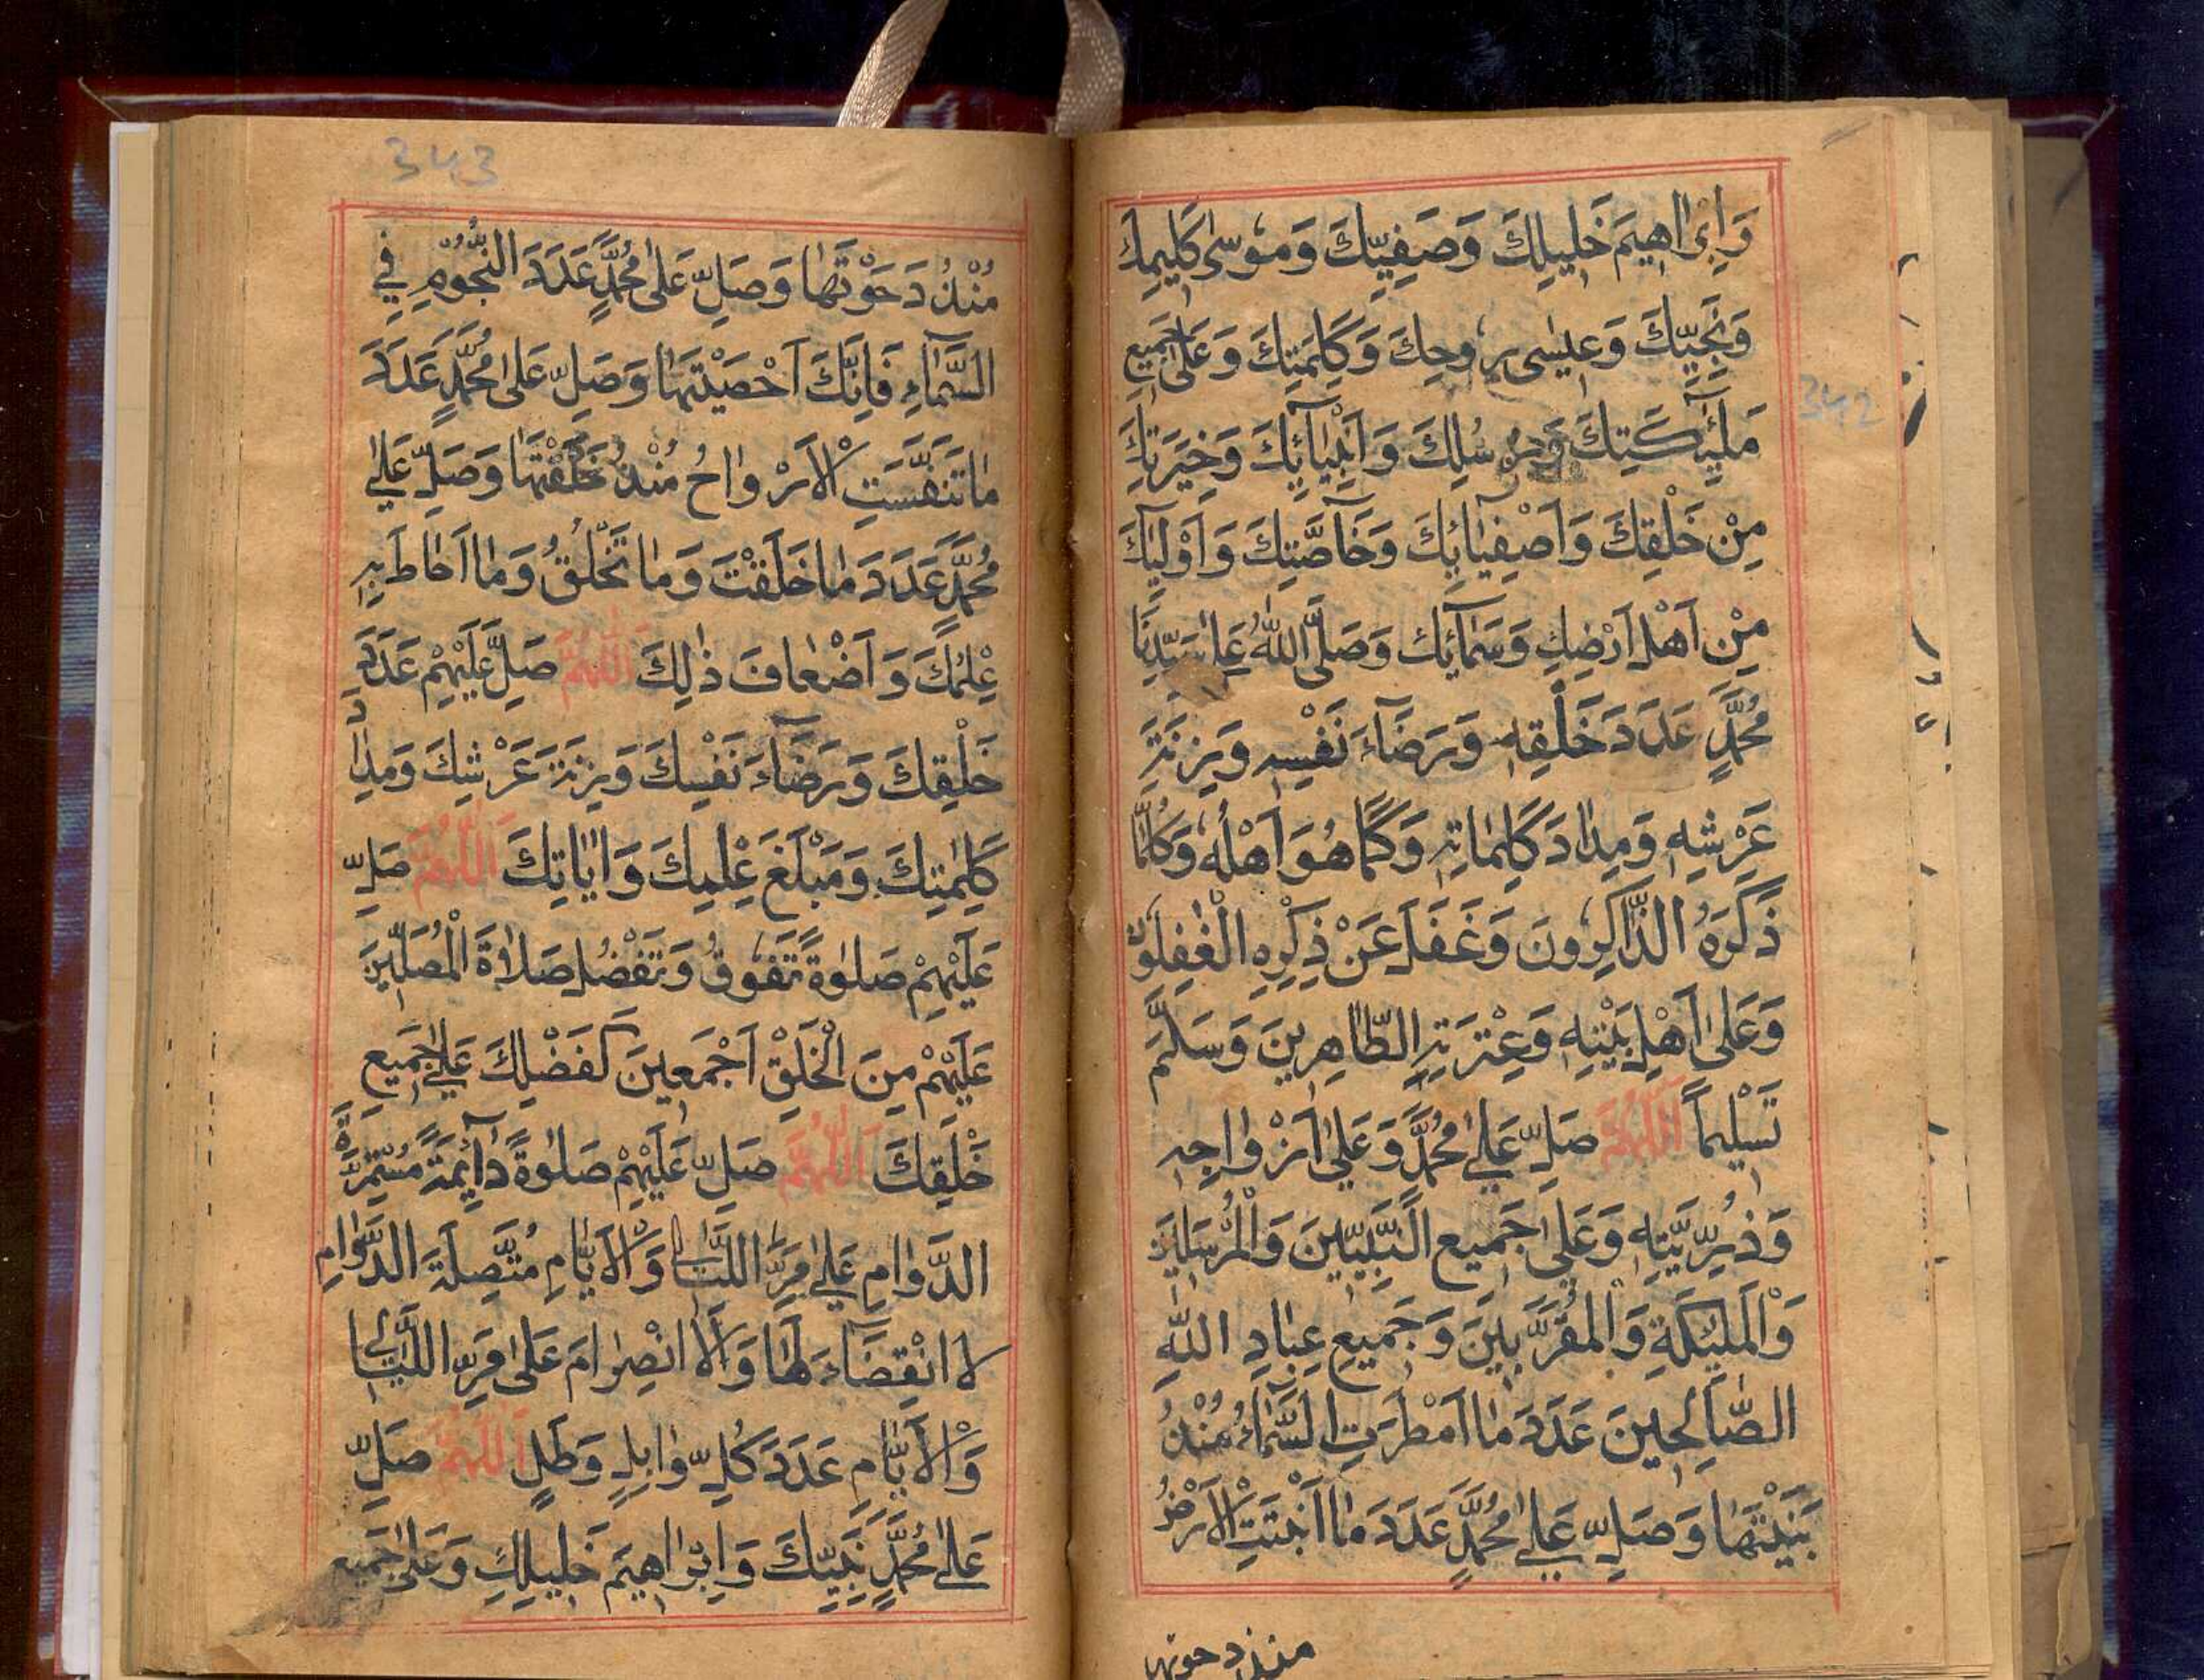 وَاِبْرَاهِيمَ خَلِيلِكَ وَصَفِيِّكَ وَمُوسٰى كَلِيمِكَ
وَنَجِيِّكَ وَعِيسٰى رُوحِكَ وَكَلِمَتِكَ وَعَلٰى جَمِيعِ
مَلٰٓئِكَتِكَ وَرُسُلِكَ وَاَنْبِيَآئِكَ وَخِيَرَتِكَ
مِنْ خَلْقِكَ وَاَصْفِيَآئِكَ وَخَآصَّتِكَ وَاَوْلِيَآئِكَ
مِنْ اَهْلِ اَرْضِكَ وَسَمَآئِكَ وَصَلَّى اللّٰهُ عَلٰى سَيِّدِنَا
مُحَمَّدٍ عَدَدَ خَلْقِهٖ وَرِضَآءَ نَفْسِهٖ وَزِنَةَ
عَرْشِهٖ وَمِدَادَ كَلِمَاتِهٖ وَكَمَا هُوَ اَهْلُهُ وَكُلَّمَا
ذَكَرَهُ الذَّاكِرُونَ وَغَفَلَ عَنْ ذِكْرِهِ الْغٰفِلُونَ
وَعَلٰى اَهْلِ بَيْتِهٖ وَعِتْرَتِهِ الطَّاهِرِينَ وَسَلَّمَ
تَسْلِيمًا اَللّٰهُمَّ صَلِّ عَلٰى مُحَمَّدٍ وَعَلٰى اَزْوَاجِهٖ
وَذُرِّيَّتِهٖ وَعَلٰى جَمِيعِ النَّبِيِّينَ وَالْمُرْسَلِينَ
وَالْمَلٰئِكَةِ وَالْمُقَرَّبِينَ وَجَمِيعِ عِبَادِ اللّٰهِ
الصَّالِحِينَ عَدَدَ مَا اَمْطَرَتِ السَّمَآءُ مُنْذُ
بَنَيْتَهَا وَصَلِّ عَلٰى مُحَمَّدٍ عَدَدَ مَا اَنْبَتَتِ الْاَرْضُ
منذ دحوتها
342
343
مُنْذُ دَحَوْتَهَا وَصَلِّ عَلٰى مُحَمَّدٍ عَدَدَ النُّجُومِ فِي
السَّمَآءِ فَاِنَّكَ اَحْصَيْتَهَا وَصَلِّ عَلٰى مُحَمَّدٍ عَدَدَ
مَا تَنَفَّسَتِ الْاَرْوَاحُ مُنْذُ خَلَقْتَهَا وَصَلِّ عَلٰى
مُحَمَّدٍ عَدَدَ مَا خَلَقْتَ وَمَا تَخْلُقُ وَمَا اَحَاطَ بِهٖ
عِلْمُكَ وَاَضْعَافَ ذٰلِكَ اَللّٰهُمَّ صَلِّ عَلَيْهِمْ عَدَدَ
خَلْقِكَ وَرِضَآءَ نَفْسِكَ وَزِنَةَ عَرْشِكَ وَمِدَادَ
كَلِمٰتِكَ وَمَبْلَغَ عِلْمِكَ وَاٰيَاتِكَ اَللّٰهُمَّ صَلِّ
عَلَيْهِمْ صَلٰوةً تَفُوقُ وَتَفْضُلُ صَلَاةَ الْمُصَلِّينَ
عَلَيْهِمْ مِنَ الْخَلْقِ اَجْمَعِينَ كَفَضْلِكَ عَلٰى جَمِيعِ
خَلْقِكَ اَللّٰهُمَّ صَلِّ عَلَيْهِمْ صَلٰوةً دَآئِمَةً مُسْتَمِرَّةَ
الدَّوَامِ عَلٰى مَرِّ اللَّيَالِي وَالْاَيَّامِ مُتَّصِلَةَ الدَّوَامِ
لَا انْقِضَآءَ لَهَا وَلَا انْصِرَامَ عَلٰى مَرِّ اللَّيَالِي
وَالْاَيَّامِ عَدَدَ كُلِّ وَابِلٍ وَطَلٍّ اَللّٰهُمَّ صَلِّ
عَلٰى مُحَمَّدٍ نَبِيِّكَ وَاِبْرَاهِيمَ خَلِيلِكَ وَعَلٰى جَمِيعِ